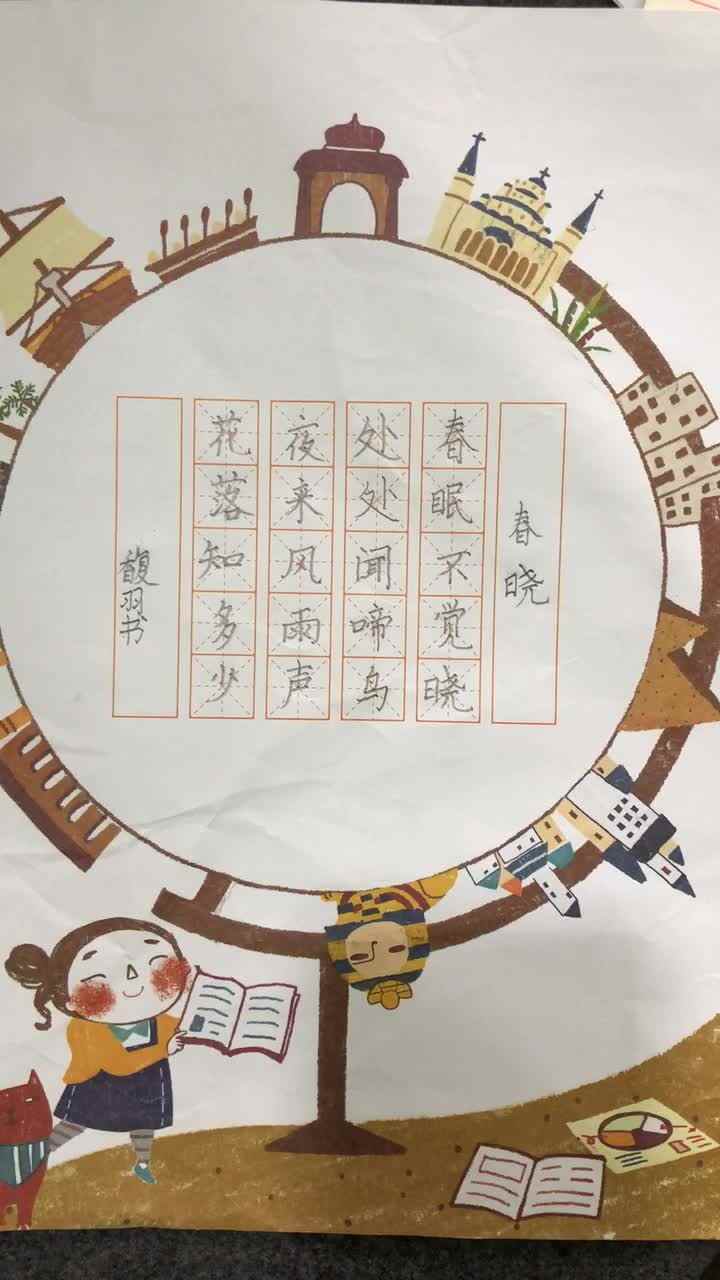 春晓
春眠不觉晓
处处闻啼鸟
夜来风雨声
花落知多少
馥羽书